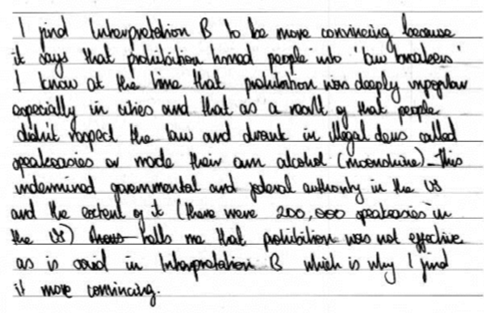 I find Interpretation B to be more convincing because
it says that prohibition turned people into 'law breakers'
I know at the time that prohibition was deeply unpopular
especially in cities and that as a result of that people
didn't respect the law and drank in illegal dens called
speakeasies or made their own alcohol (moonshine). This
undermined governmental and federal authority in the US
and the extent of it (there were 200,000 speakeasies in
the US) tells me that prohibition was not effective
as is said in Interpretation B which is why I find
it more convincing.